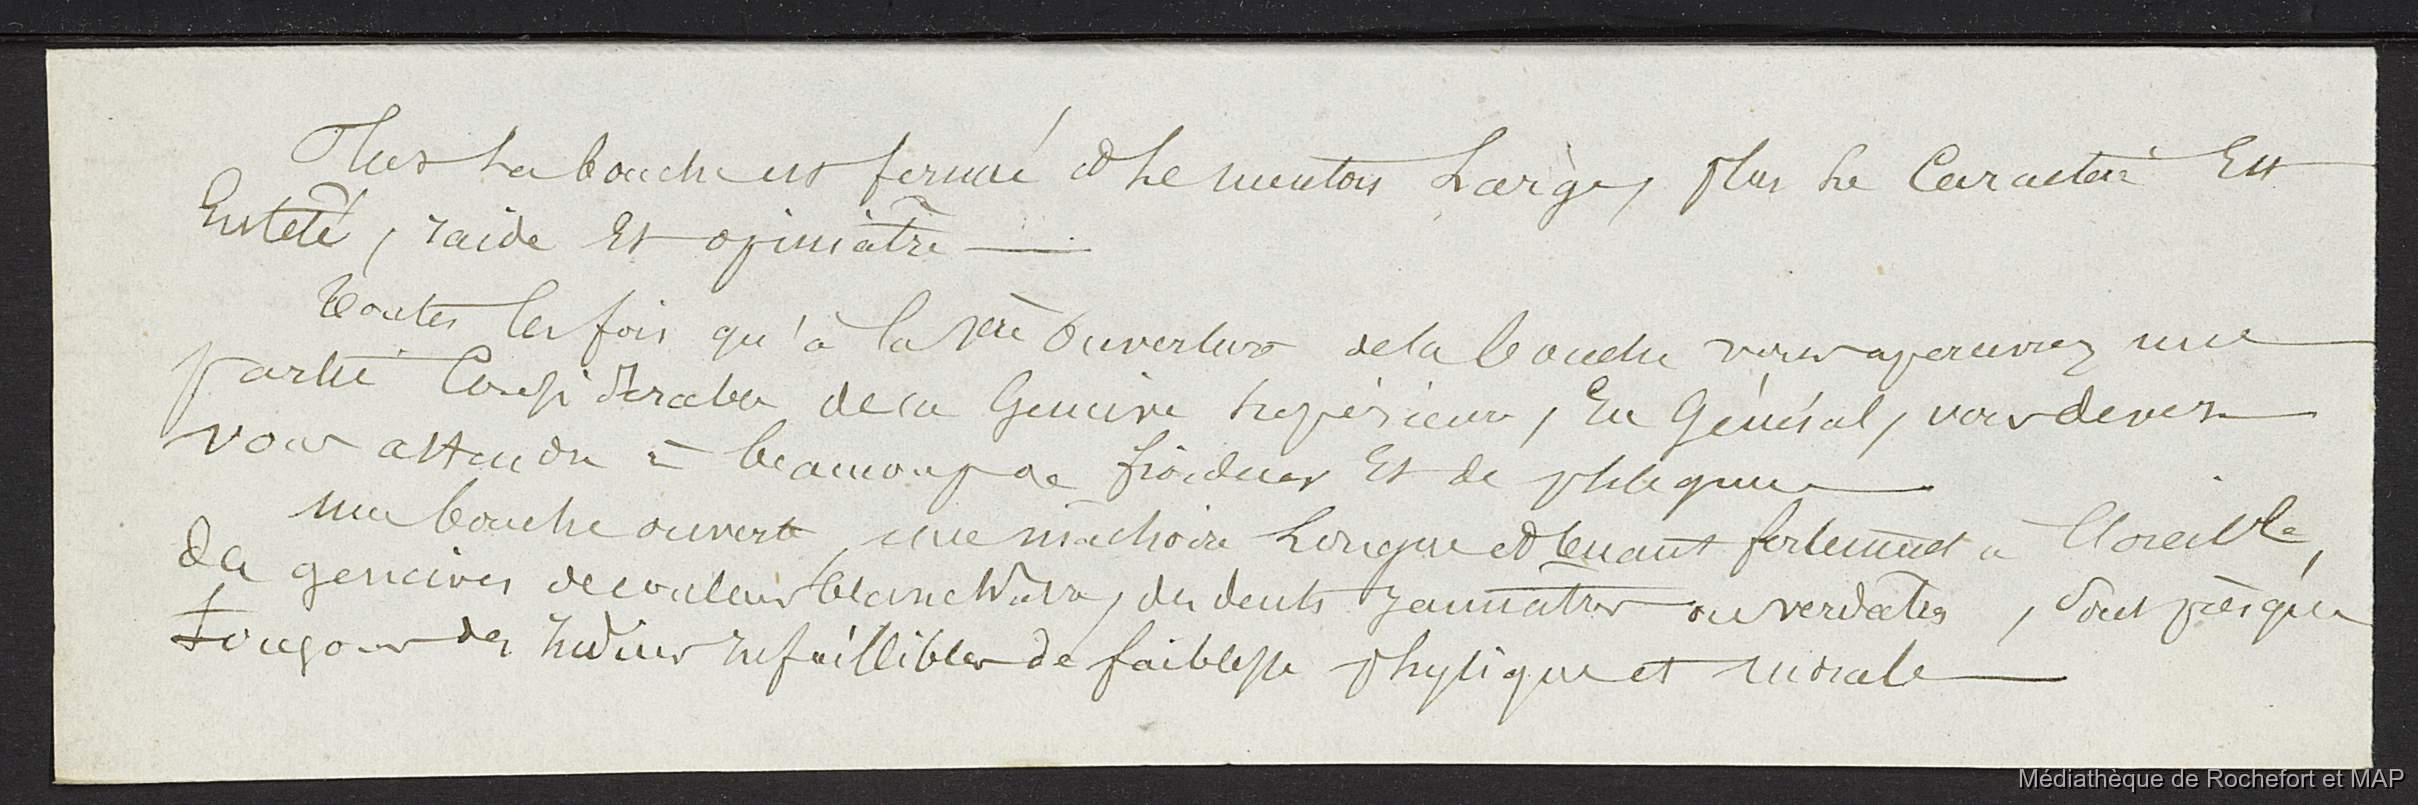 Plus la bouche est fermé et le menton Large, plus le Caractère Est
Entêté, raide Et opiniâtre
Toutes les fois qu'à la 1ère Ouverture de la bouche vous apercevrez une
partie Considérable de la Gencive supérieure, En Général, vous devez
vous attendre à beaucoup de froideur Et de phlegme
une bouche ouverte, une mâchoire Longue et tenant fortement à L'oreille,
Des gencives de couleur blanchâtre, des dents jaunâtres ou verdâtres, sont presque
toujours des Indices Infaillibles de faiblesse physique et morale
Médiathèque de Rochefort et MAP